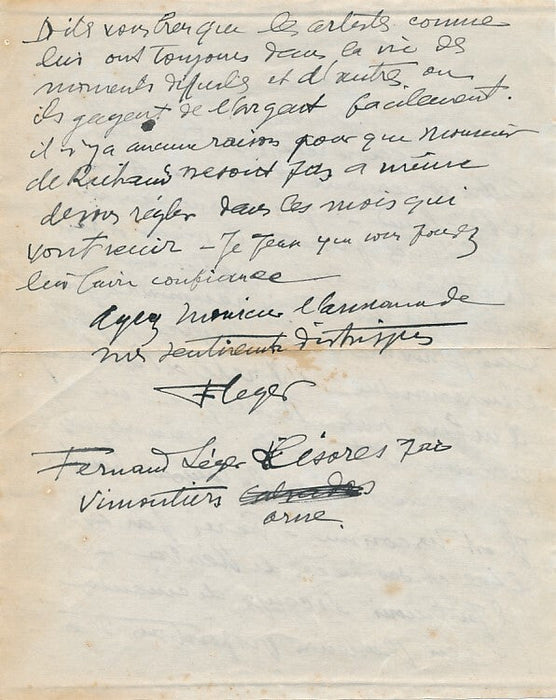 Dites vous bien que les artistes comme
lui ont toujours dans la vie des
moments difficiles et d'autres ou
ils gagent de l'argent facilement.
il n'y a aucune raison pour que Monsieur
de Richaud ne soit pas a même
de vous régler dans les mois qui
vont venir – Je pense que vous pouvez
lui faire confiance
Ayez Monsieur l'assurance de
mes sentiments distingués
FLeger
Fernand Léger Lisores par
Vimoutiers
orne.